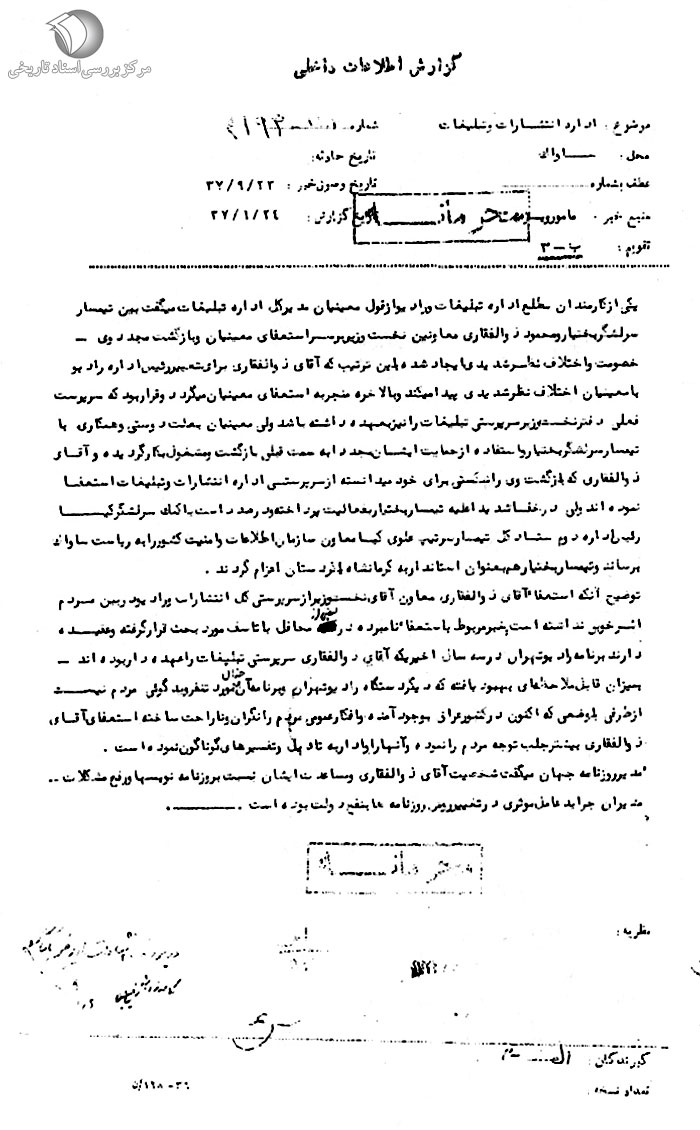 مرکز بررسی اسناد تاریخی
گزارش اطلاعات داخلی
موضوع : اداره انتشارات و تبلیغات
شماره
محل : ساواک
تاریخ حادثه:
عطف بشماره
تاریخ وصول خبر : ۳۷/۹/۲۳
منبع خبر : مامورو
محرمانه
تاریخ گزارش : ۳۷/۹/۲۴
تقویم : ب - ۳
یکی از کارمندان مطلع اداره تبلیغات و رادیو از قول معینیان مدیرکل اداره تبلیغات میگفت بین تیمسار
سرلشگر بختیار و محمود ذوالفقاری معاونین نخست وزیر بر سر استعفای معینیان و بازگشت مجدد وی -
خصومت و اختلاف نظر شدیدی ایجاد شده باین ترتیب که آقای ذوالفقاری برای تعمیر رئیس اداره رادیو
با معینیان اختلاف نظر شدیدی پیدا میکند و بالاخره منجر به استعفای معینیان میگردد و قرار بود که سرپرست
فعلی دفتر نخست وزیر سرپرستی تبلیغات را نیز بعهده داشته باشد ولی معینیان بعلت دوستی و همکاری با
تیمسار سرلشگر بختیار و استفاده از حمایت ایشان مجددا به سمت قبلی بازگشت و مشغول بکار گردیده و آقای
ذوالفقاری که بازگشت وی را شکستی برای خود میدانسته از سرپرستی اداره انتشارات و تبلیغات استعفا
نموده اند ولی در خفا شدیدا علیه تیمسار بختیار بفعالیت پرداخته و در صدد است با کمک سرلشگر کیا
رئیس اداره دوم ستاد کل تیمسار سرتیپ علوی کیا معاون سازمان اطلاعات و امنیت کشور را به ریاست ساواک
برساند و تیمسار بختیار هم بعنوان استاندار به کرمانشاه یا کردستان اعزام گردند .
توضیح آنکه استعفا آقای ذوالفقاری معاون آقای نخست وزیر از سرپرستی کل انتشارات و رادیو در بین مردم
اثر خوبی نداشته است خبر مربوط با استعفا نامبرده در بعضی از محافل با تاسف مورد بحث قرار گرفته و عقیده
دارند برنامه رادیو تهران در سه سال اخیر یکه آقای ذوالفقاری سرپرستی تبلیغات را عهده دار بوده اند -
بمیزان قابل ملاحظه‌ای بهبود یافته که دیگر دستگاه رادیو تهران و برنامه آن مورد تنفر و بدگوئی مردم نیست
از طرفی با وضعی که اکنون در کشور عراق بوجود آمده و افکار عمومی مردم را نگران و ناراحت ساخته استعفای آقای
ذوالفقاری بیشتر جلب توجه مردم را نموده و آنها را وادار به تاویل و تفسیرهای گوناگون نموده است .
مدیر روزنامه جهان میگفت شخصیت آقای ذوالفقاری و مساعدت ایشان نسبت بروزنامه نویسها و رفع مشکلات --
مدیران جراید عامل موثری در تغییر رویه روزنامه ها بنفع دولت بوده است .
محرمانه
نظریه :
گیرندگان : الف - ۳
تعداد نسخه :
۳۶-۱۶۸/ن